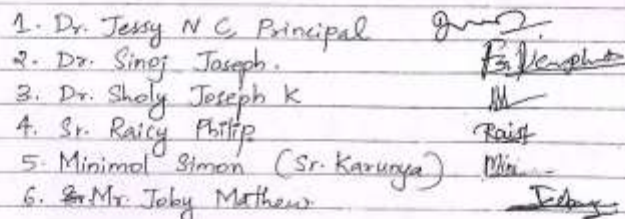 1. Dr. Jessy N C, Principal
2. Dr. Sinoj Joseph.
3. Dr. Sholy Joseph K
4. Sr. Raicy Philip
5. Minimol Simon (Sr. Karunya)
6. Mr. Joby Mathew